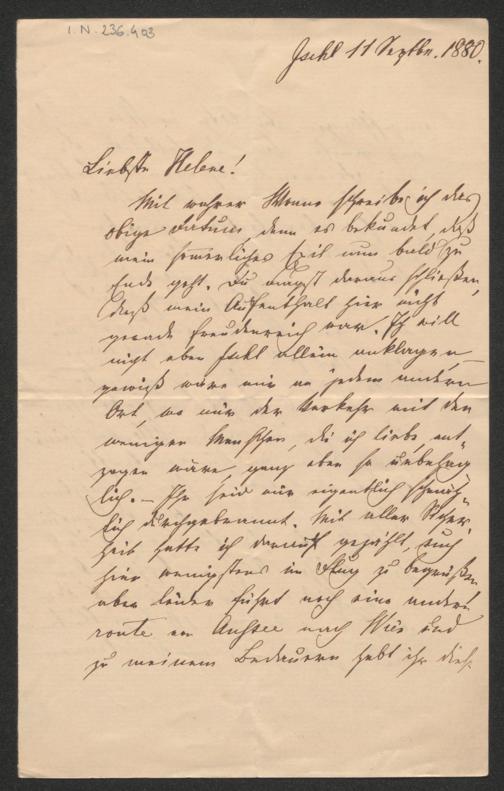 I. N. 236.403
Ischl 11 Septbr. 1880.
Liebste Helene!
Mit wahrer Wonne schreibe ich das
obige Datum, denn es bekundet, daß
mein sommerliches Exil nun bald zu
Ende geht. Du magst daraus schließen,
daß mein Aufenthalt hier nicht
gerade freudenreich war. Ich will
nicht eben Ischl allein anklagen,
gewiß wäre mir an jedem andern
Ort, wo mir der Verkehr mit den
wenigen Menschen, die ich liebe, ent-
zogen wäre, ganz eben so unbehag-
lich. – Ihr seid mir eigentlich schmäh-
lich durchgebrannt. Mit aller Sicher-
heit hatte ich darauf gezählt, euch
hier wenigstens im Flug zu begrüßen
aber leider führt noch eine andere
route von Aussee nach Wien und
zu meinem Bedauern habt ihr diese